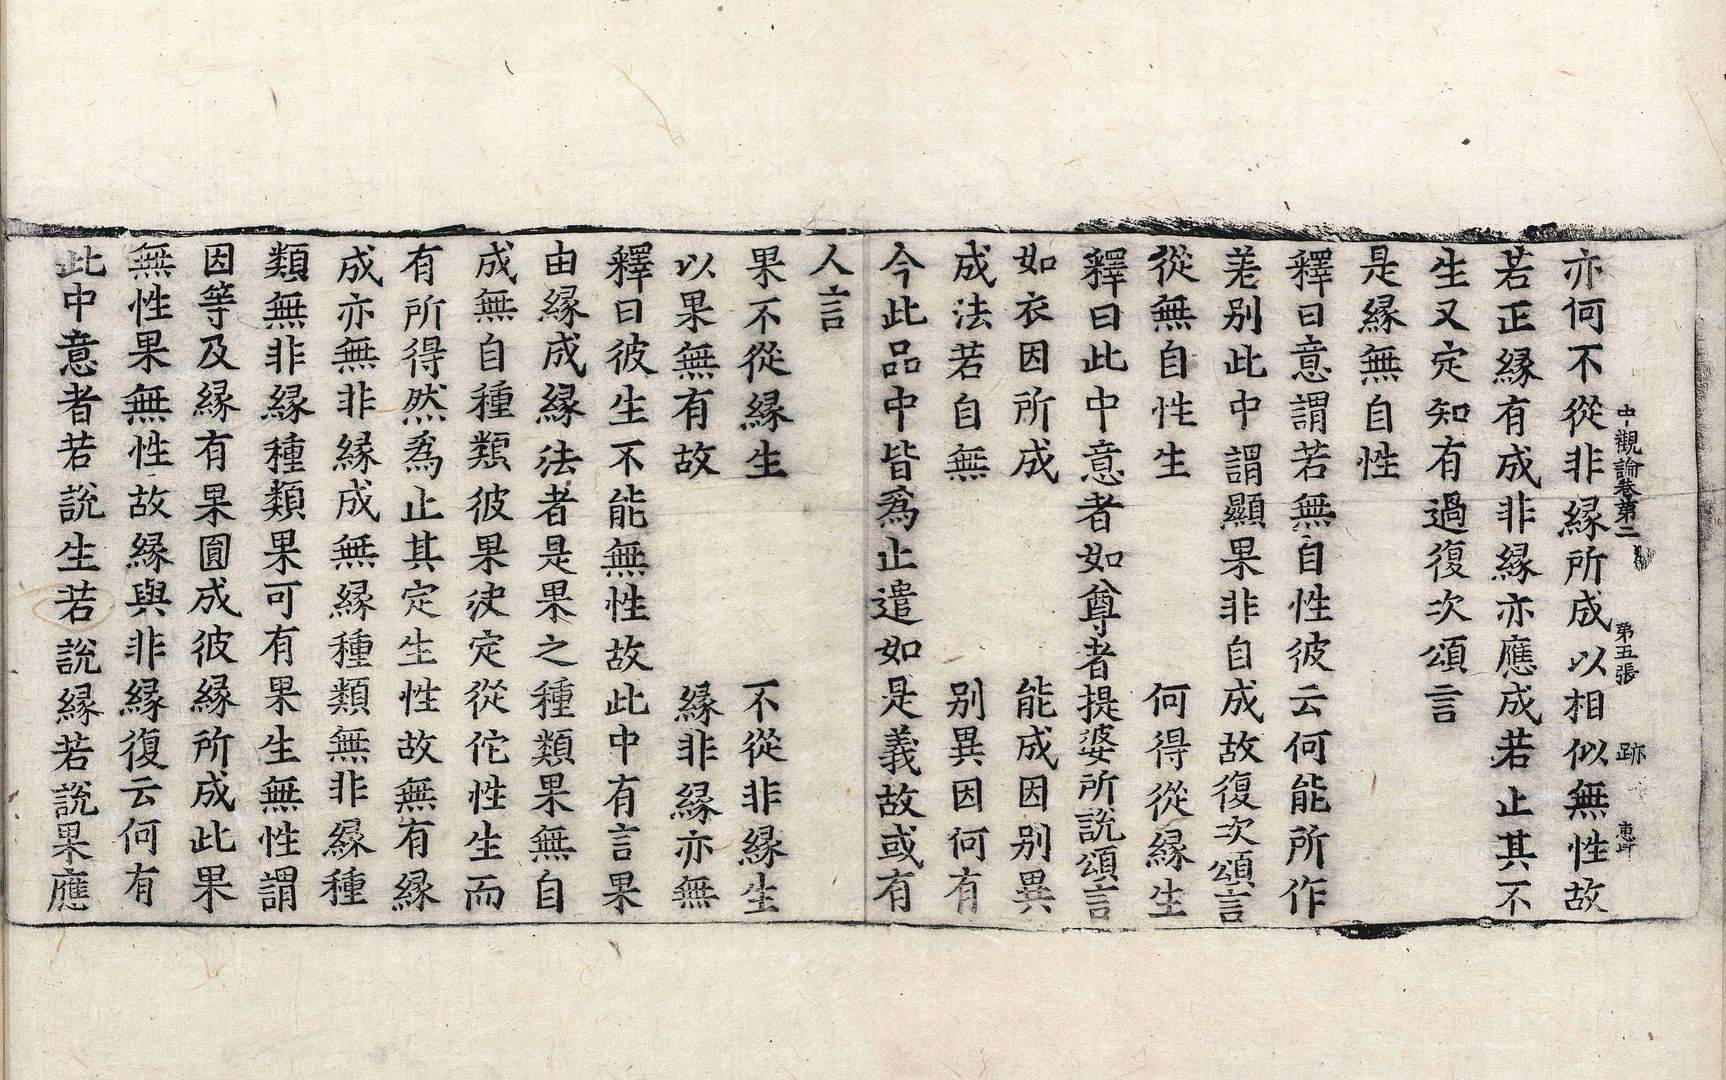 中觀論卷第二 第五張 跡
亦何不從非緣所成以相似無性故
若正緣有成非緣亦應成若止其不
生又定知有過復次頌言
是緣無自性
釋曰意謂若無自性彼云何能所作
差別此中謂顯果非自成故復次頌言
從無自性生 何得從緣生
釋曰此中意者如尊者提婆所說頌言
如衣因所成 能成因別異
成法若自無 別異因何有
今此品中皆為止遣如是義故或有
人言
果不從緣生 不從非緣生
以果無有故 緣非緣亦無
釋曰彼生不能無性故此中有言果
由緣成緣法者是果之種類果無自
成無自種類彼果決定從佗性生而
有所得然為止其定生性故無有緣
成亦無非緣成無緣種類無非緣種
類無非緣種類果可有果生無性謂
因等及緣有果圓成彼緣所成此果
無性果無性故緣與非緣復云何有
此中意者若說生若說緣若說果應